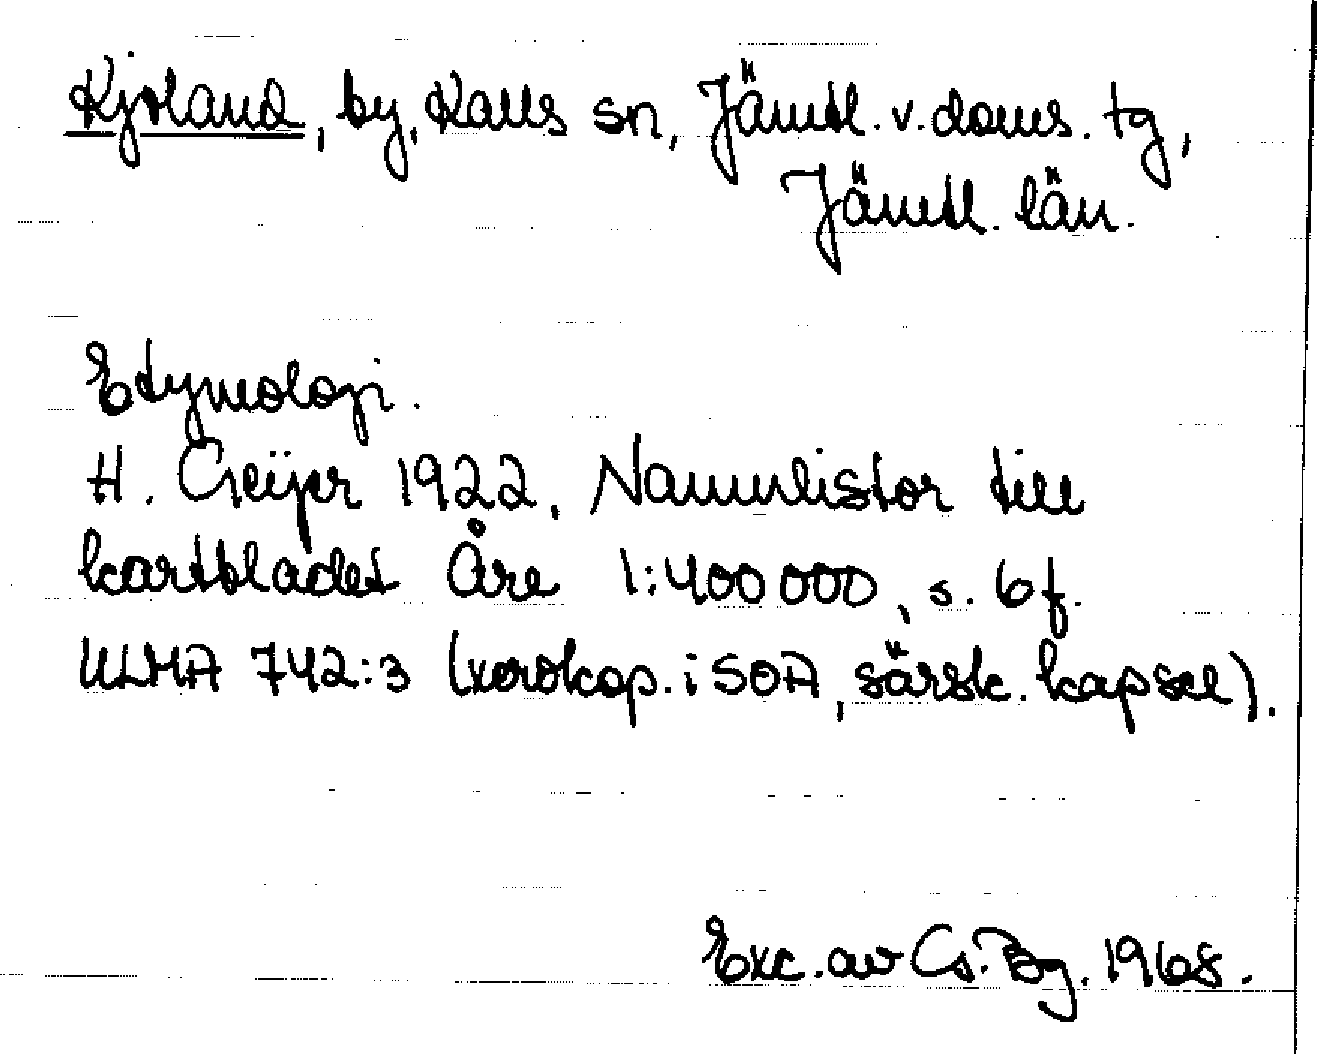 Kjoland, by, Kalls sn, Jämtl. v. doms. tg,
Jämtl. län.
Etymologi.
H. Geijer 1922, Namnlistor till
kartbladet Åre 1:400 000, s. 6 f.
ULMA 742:3 (xerokop. i SOA, särsk. kapsel).
Exc. av Cs. Bg. 1968.